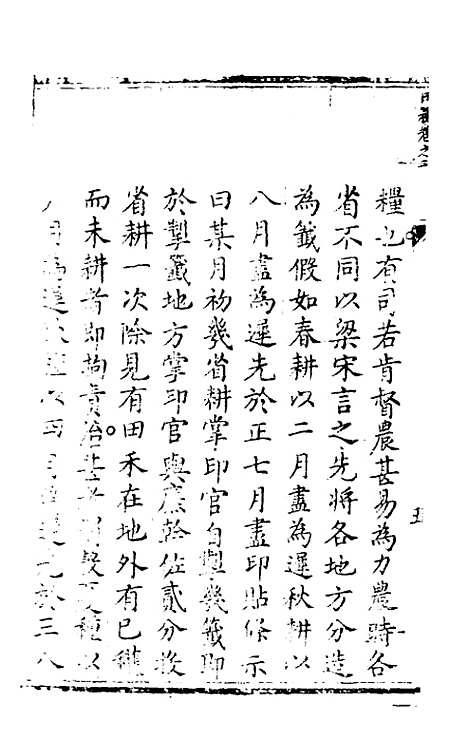 糧也有司若肯督農甚易為力農時各
省不同以梁宋言之先將各地方分造
為籤假如春耕以二月盡為遲秋耕以
八月盡為遲先於正七月盡印貼條示
曰某月初幾省耕掌印官自掣幾籤即
於掣籤地方掌印官與廉幹佐貳分投
省耕一次除見有田禾在地外有已
而未耕者即拘責治甚者 種以
月為遲 四月 遲先於三八